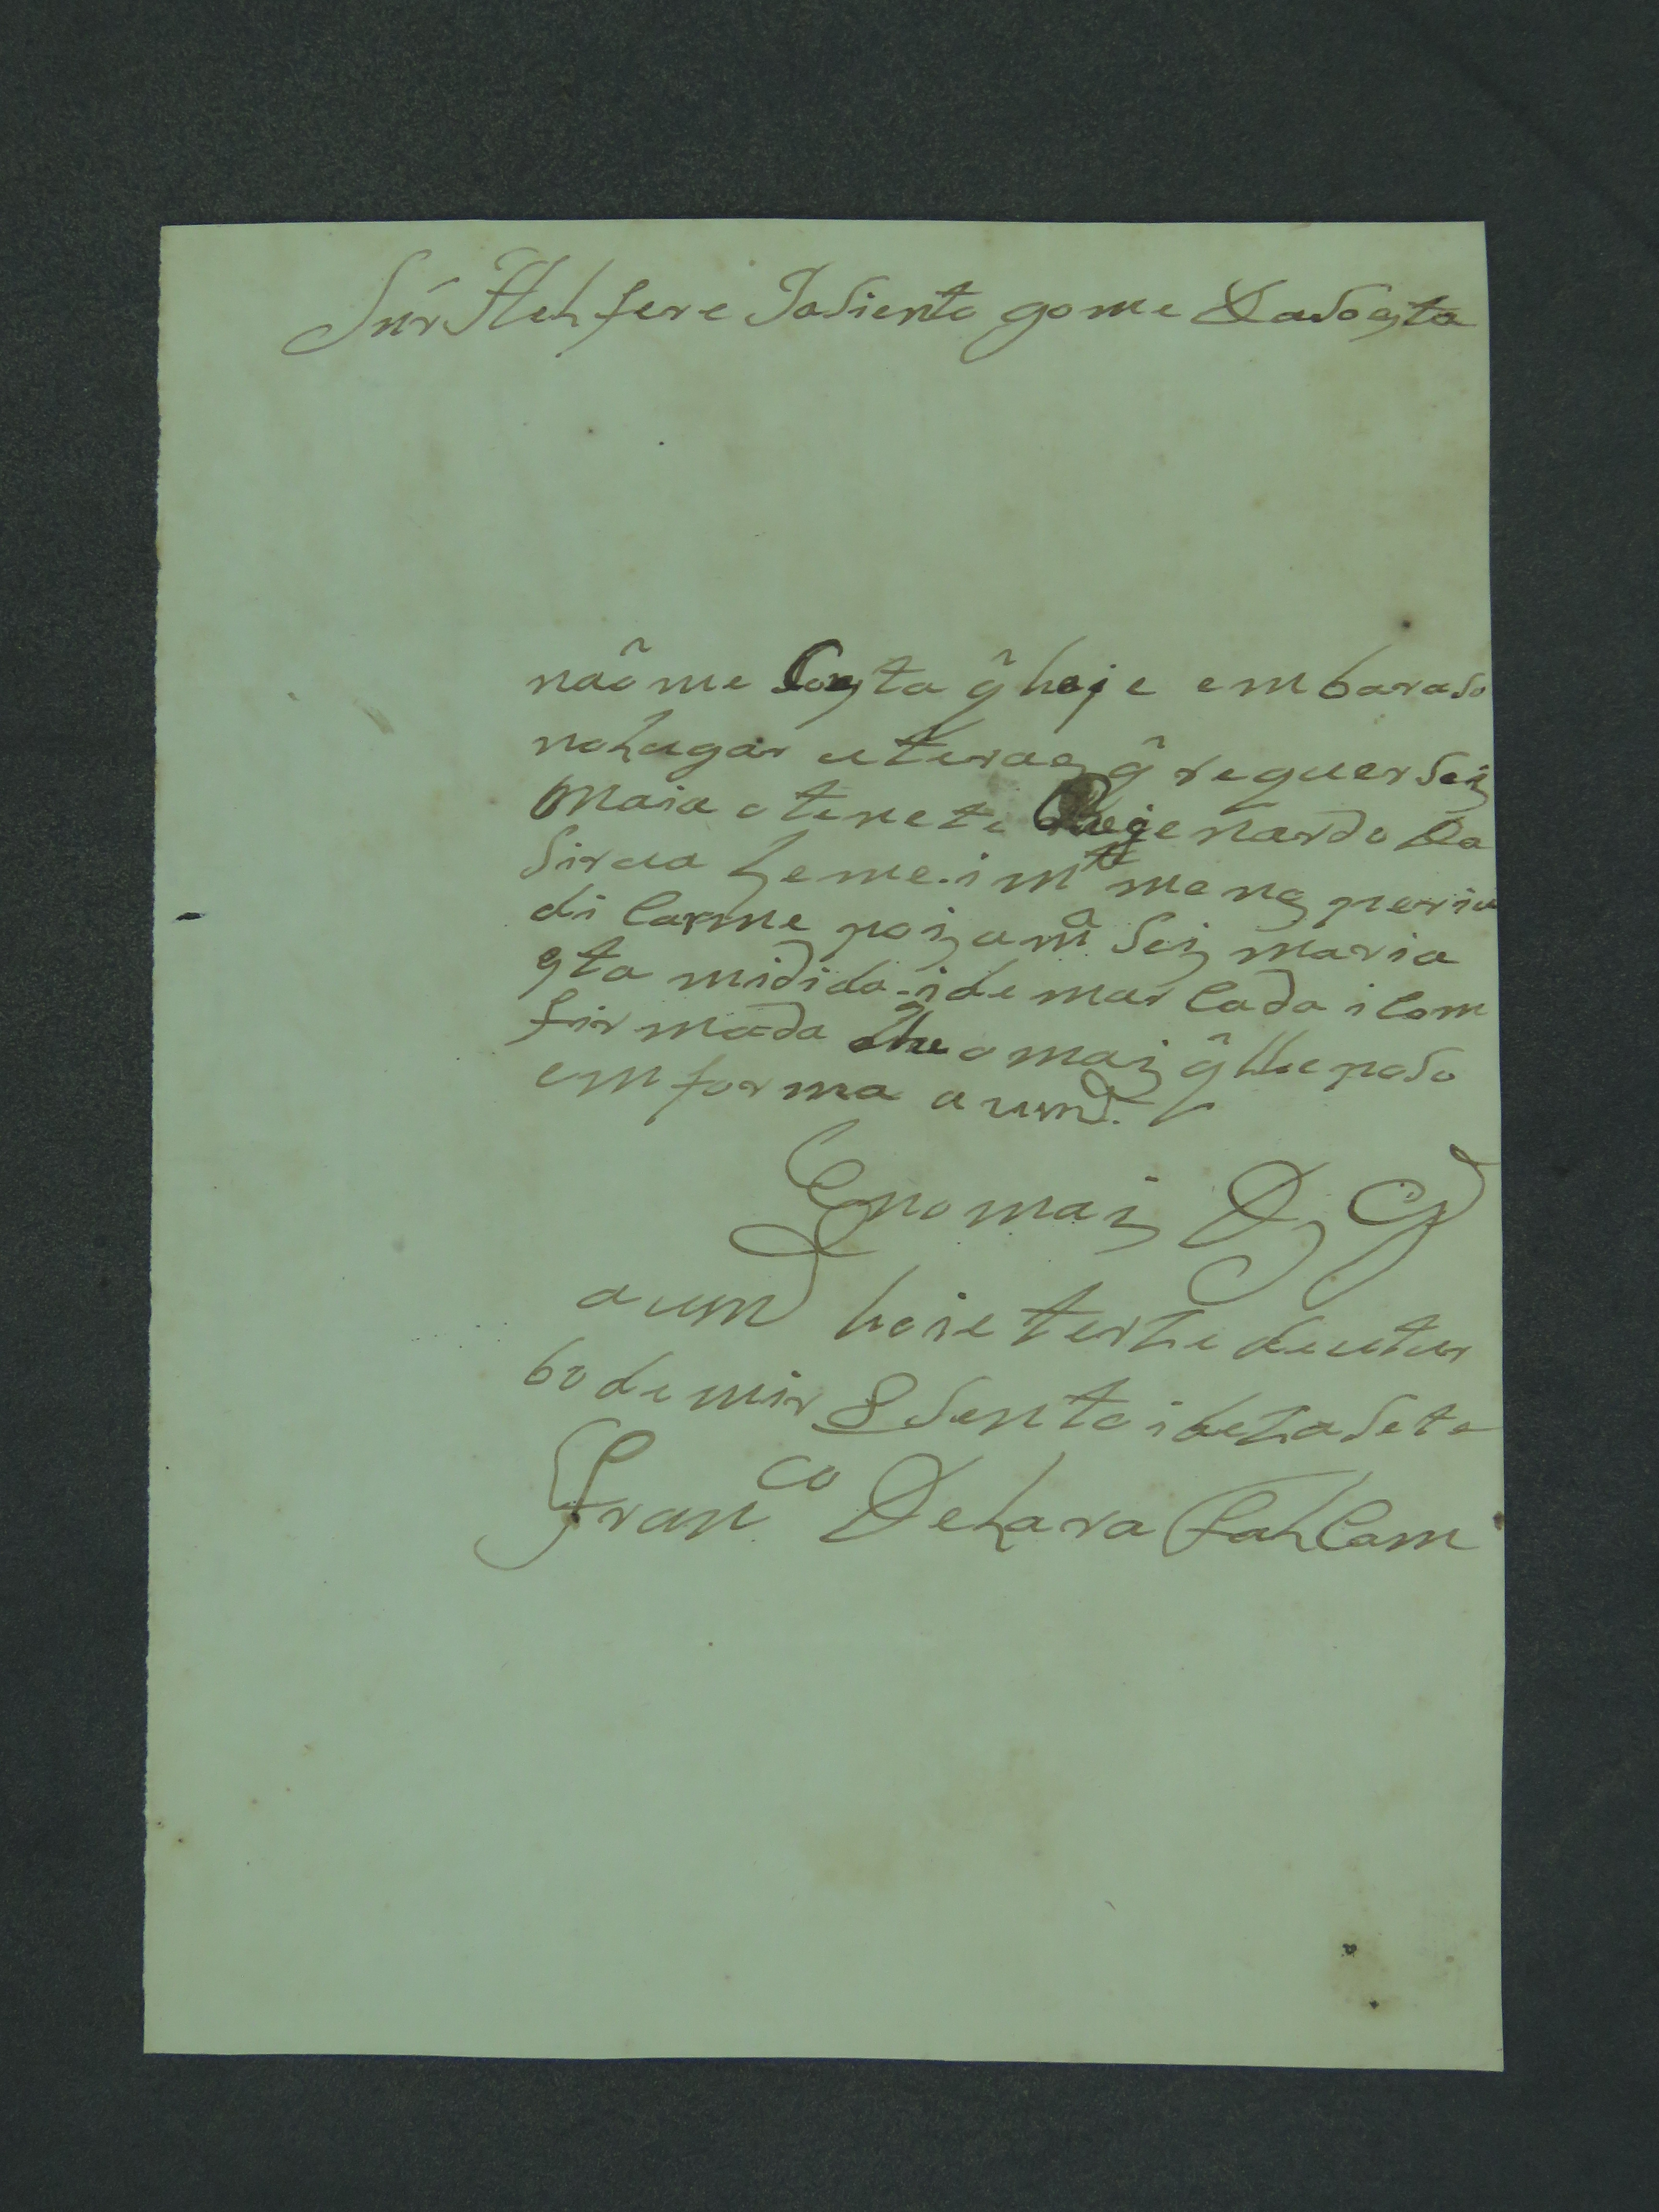 Snr̃ Alfere Jasiento gome Dacosta
naõ me Consta q̃ haje embaraso
nolugar uteras q̃ requer Seis
Maia o tenete genardo Da
Sirva heme.i mto menos persiu
di larme pois a m.a Seis maria
esta midida.i de mar cada i com
fir mada he o mais q̃ lhe poso
em forma a vmd.
Eno mais D.s G.d
a vmd hoie terse deutur
bo de mir 8 sento i deza sete
Fran.co DeLara Falcam